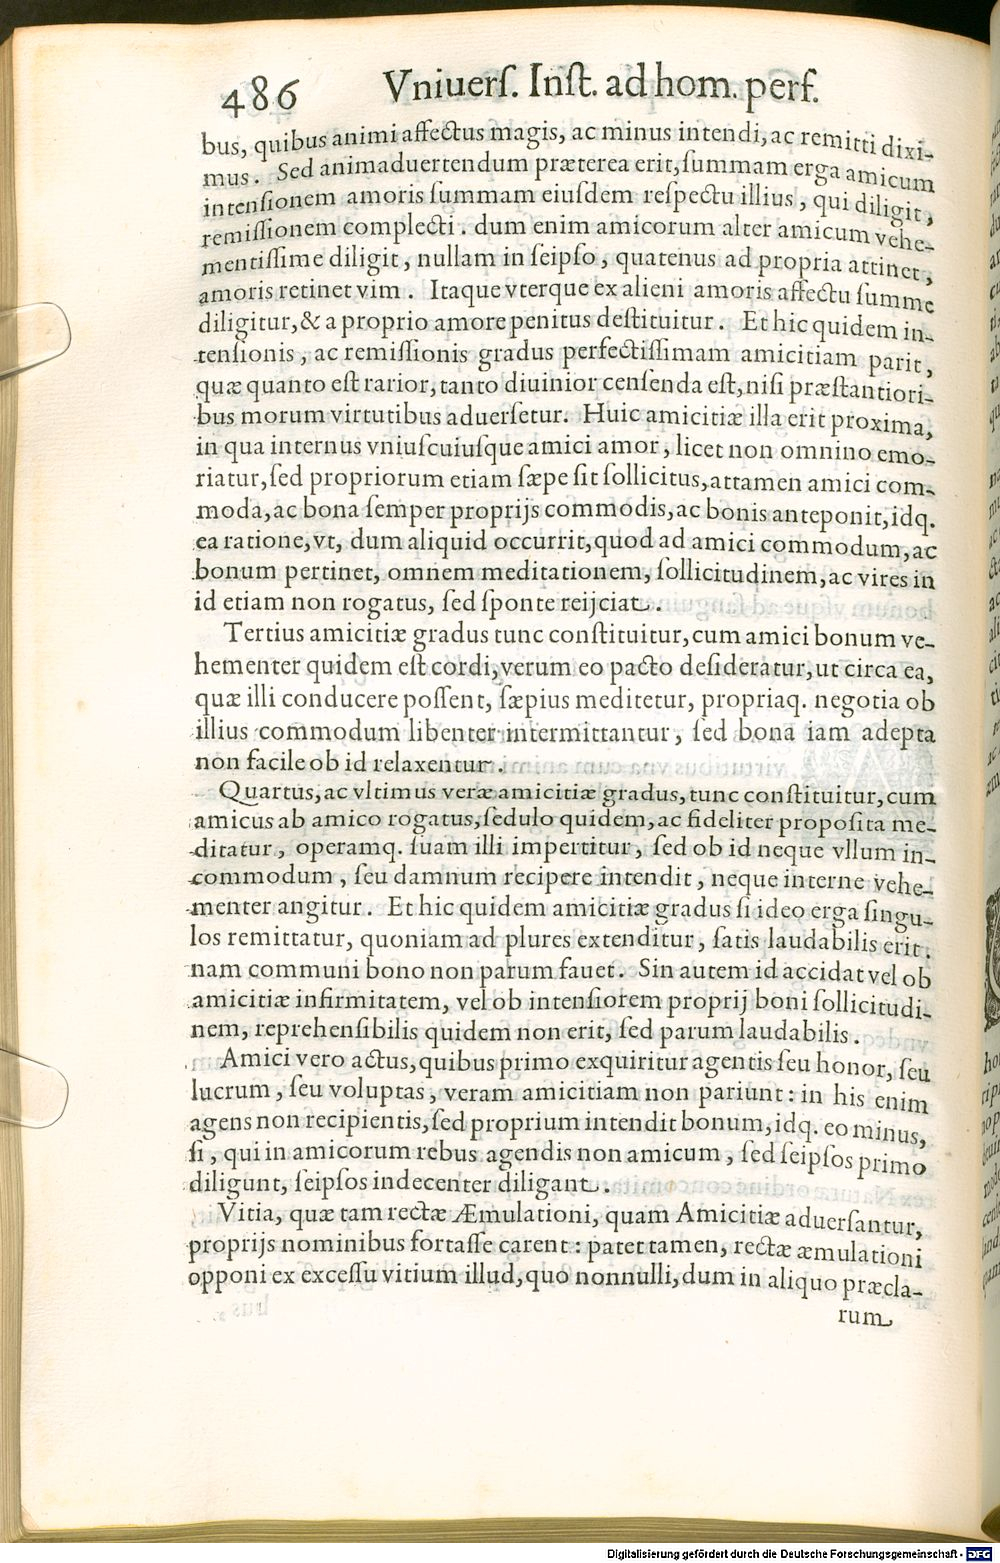 486 Vniuerſ. Inſt. ad hom. perf.
bus, quibus animi affectus magis, ac minus intendi, ac remitti dixi-
mus. Sed animaduertendum præterea erit, ſummam erga amicum
intenſionem amoris ſummam eiuſdem reſpectu illius, qui diligit,
remiſſionem complecti. dum enim amicorum alter amicum vehe-
mentiſſime diligit, nullam in ſeipſo, quatenus ad propria attinet,
amoris retinet vim. Itaque vterque ex alieni amoris affectu ſumme
diligitur, & a proprio amore penitus deſtituitur. Et hic quidem in-
tenſionis, ac remiſſionis gradus perfectiſſimam amicitiam parit,
quæ quanto eſt rarior, tanto diuinior cenſenda eſt, niſi præſtantiori-
bus morum virtutibus aduerſetur. Huic amicitiæ illa erit proxima,
in qua internus vniuſcuiuſque amici amor, licet non omnino emo-
riatur, ſed propriorum etiam ſæpe ſit ſollicitus, attamen amici com-
moda, ac bona ſemper proprijs commodis, ac bonis anteponit, idq.
ea ratione, vt, dum aliquid occurrit, quod ad amici commodum, ac
bonum pertinet, omnem meditationem, ſollicitudinem, ac vires in
id etiam non rogatus, ſed ſponte reijciat.
Tertius amicitiæ gradus tunc conſtituitur, cum amici bonum ve-
hementer quidem eſt cordi, verum eo pacto deſideratur, ut circa ea,
quæ illi conducere poſſent, ſæpius meditetur, propriaq. negotia ob
illius commodum libenter intermittantur, ſed bona iam adepta
non facile ob id relaxentur.
Quartus, ac vltimus veræ amicitiæ gradus, tunc conſtituitur, cum
amicus ab amico rogatus, ſedulo quidem, ac fideliter propoſita me-
ditatur, operamq. ſuam illi impertitur, ſed ob id neque vllum in-
commodum, ſeu damnum recipere intendit, neque interne vehe-
menter angitur. Et hic quidem amicitiæ gradus ſi ideo erga ſingu-
los remittatur, quoniam ad plures extenditur, ſatis laudabilis erit.
nam communi bono non parum fauet. Sin autem id accidat vel ob
amicitiæ infirmitatem, vel ob intenſiorem proprij boni ſollicitudi-
nem, reprehenſibilis quidem non erit, ſed parum laudabilis.
Amici vero actus, quibus primo exquiritur agentis ſeu honor, ſeu
lucrum, ſeu voluptas, veram amicitiam non pariunt: in his enim
agens non recipientis, ſed proprium intendit bonum, idq. eo minus,
ſi, qui in amicorum rebus agendis non amicum, ſed ſeipſos primo
diligunt, ſeipſos indecenter diligant.
Vitia, quæ tam rectæ Æmulationi, quam Amicitiæ aduerſantur,
proprijs nominibus fortaſſe carent: patet tamen, rectæ æmulationi
opponi ex exceſſu vitium illud, quo nonnulli, dum in aliquo præcla-
rum
Digitalisierung gefördert durch die Deutsche Forschungsgemeinschaft - DFG